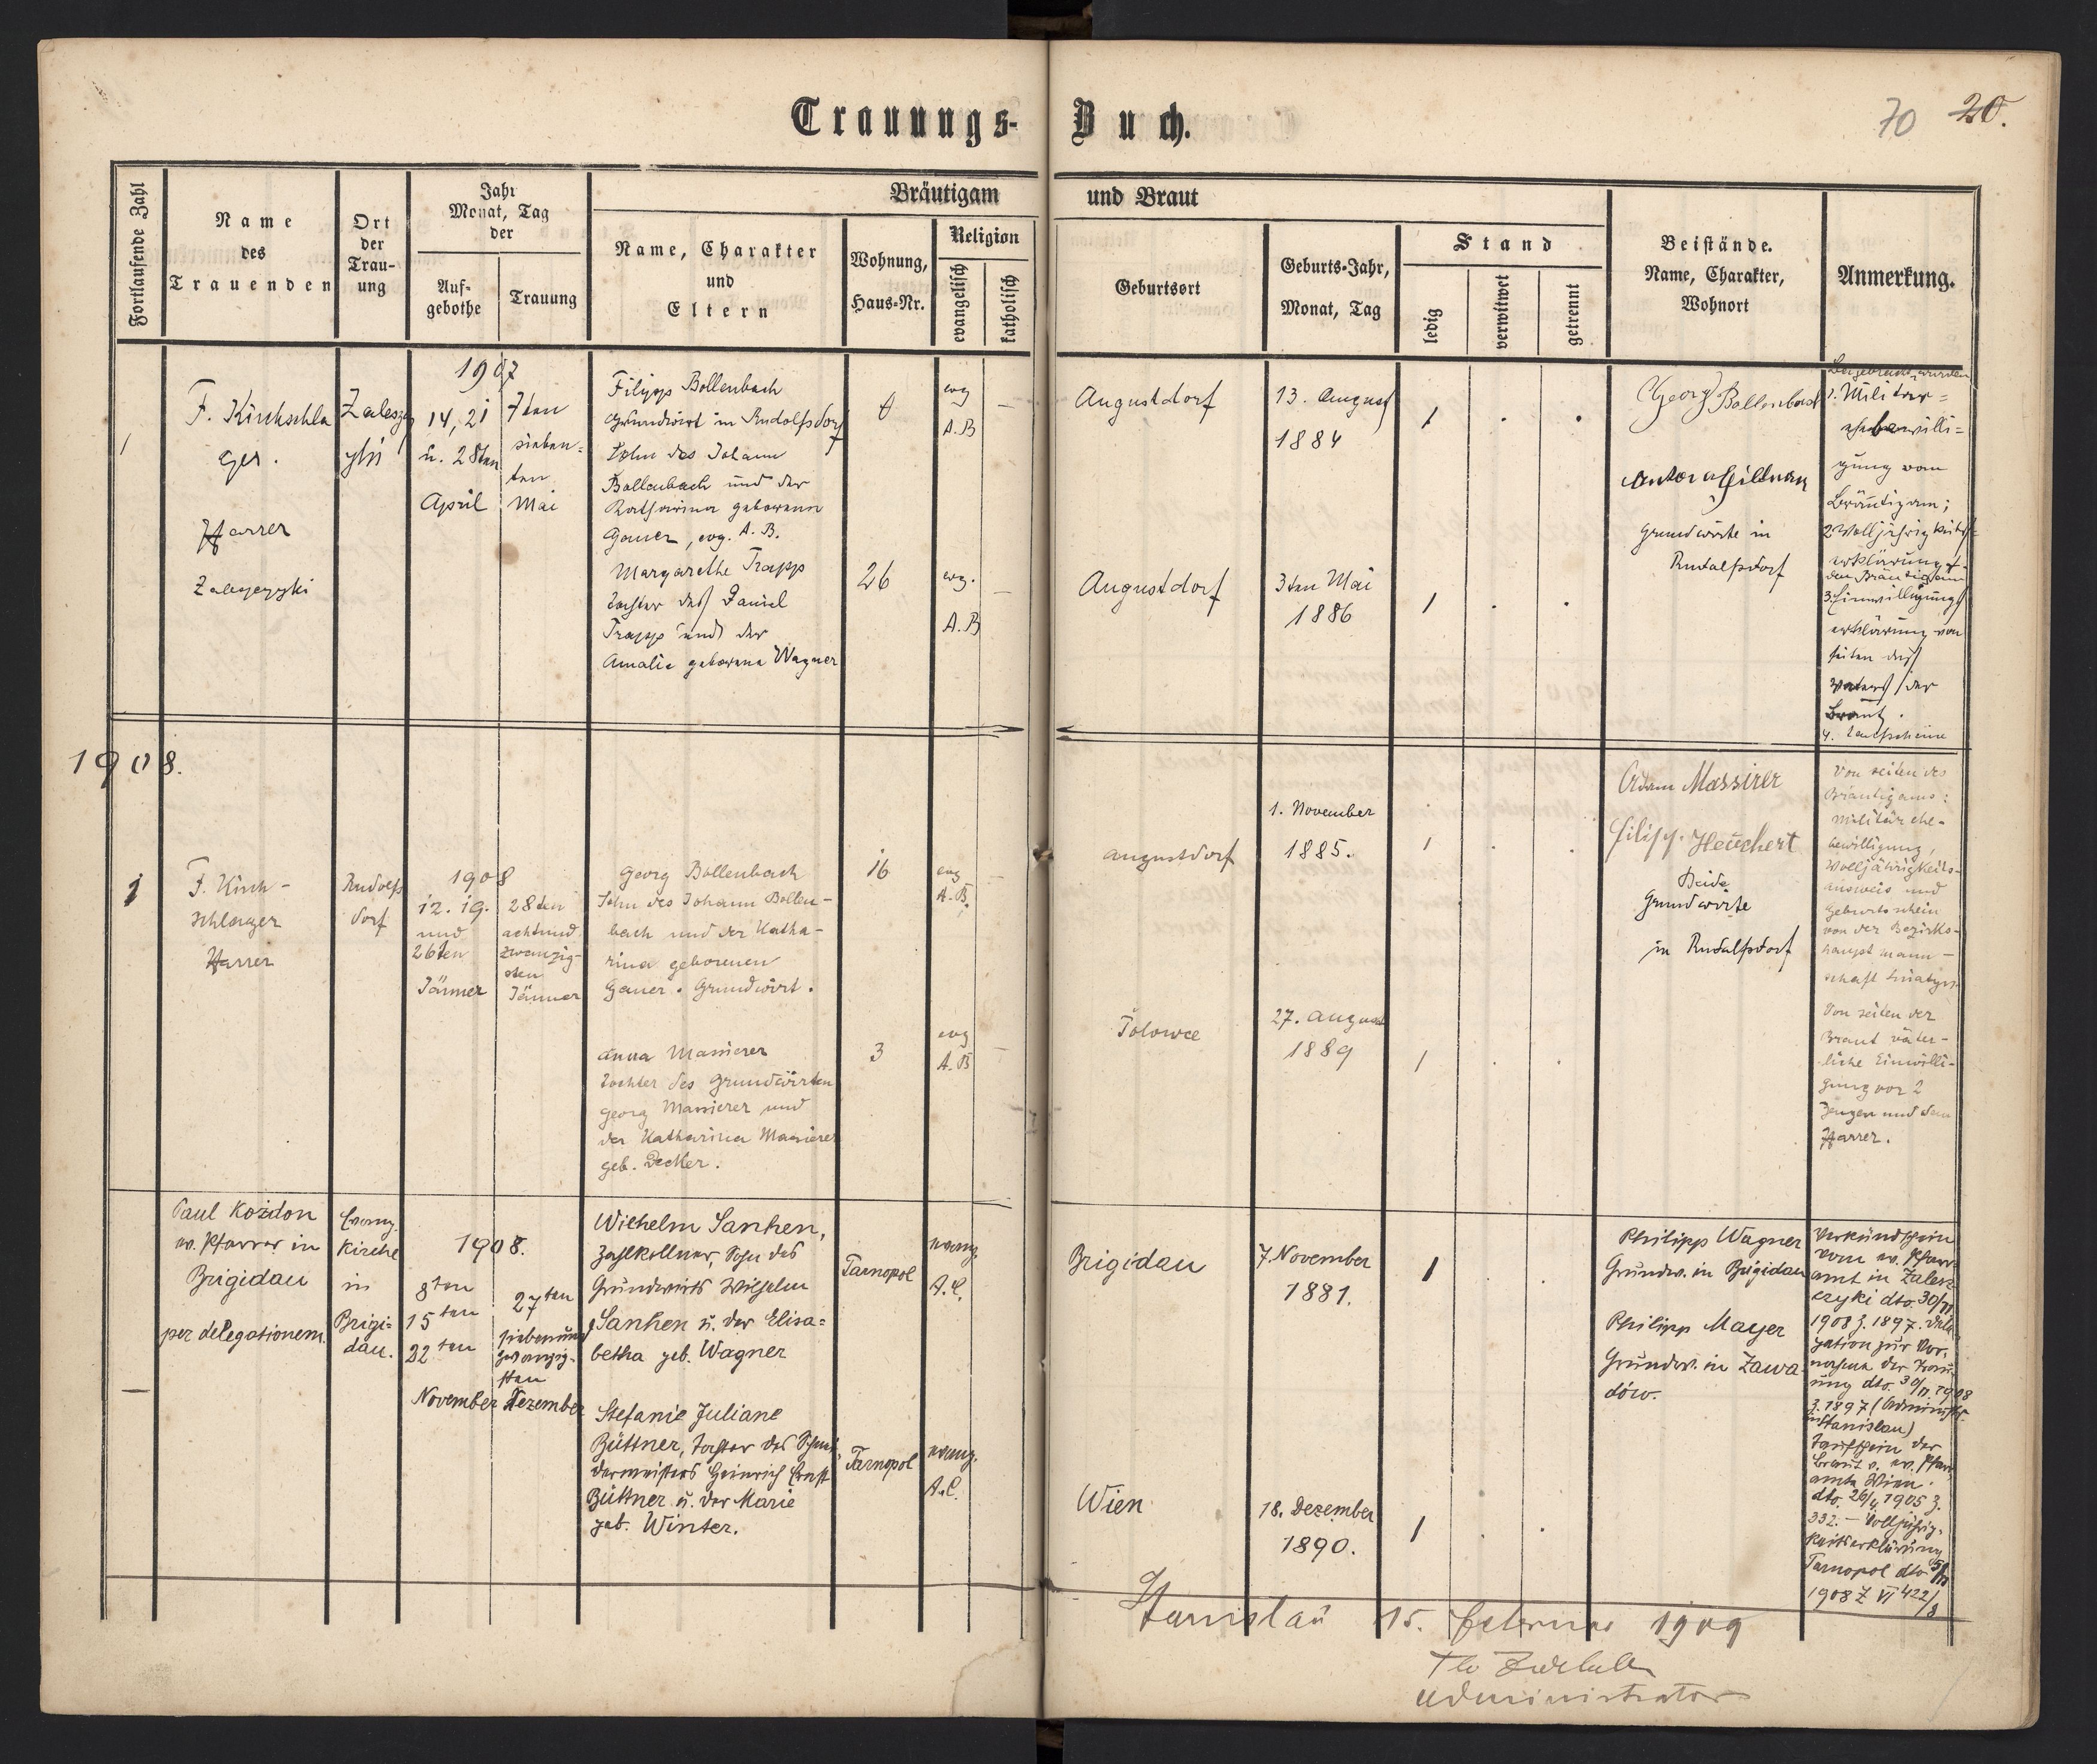 Trauungs-Buch.
70 20.
Fortlaufende Zahl
Name
des
Trauenden
Ort
der
Trau-
ung
Jahr
Monat, Tag
der
Auf-
gebothe
Trauung
Bräutigam und Braut
Name, Charakter
und
Eltern
Wohnung,
Haus-Nr.
Religion
evangelisch
katholisch
Geburtsort
Geburts-Jahr,
Monat, Tag
Stand
ledig
verwitwet
getrennt
Beistände.
Name, Charakter,
Wohnort
Anmerkung.
1
F. Kirchschla
ger.
Pfarrer
Zaleszczyki
Zaleszy
yki
1907
14, 21
u. 28ten
April
7ten
sieben-
ten
Mai
Filipp Bollenbach
Grundwirt in Rudolfsdorf
Sohn des Johann
Bollenbach und der
Katharina geborenen
Gauer, evg. A. B.
evg
A. B
Augustdorf
13. August
1884
1
Georg Bollenbach
Anton
Grundwirte in
Rudolfsdorf
Beigebracht wurden
1. Militär-
ehebewilli-
gung vom
Bräutigam;
2 Volljährigkeits-
erklärung
den Bräutigam
3. Einwilligungs
erklärung von
seiten des
Vaters der
Braut.
4. Taufscheine
Margarethe Trapp
Tochter des Daniel
Trapp und der
Amalie geborene Wagner
26
evg.
A. B
Augustdorf
3ten Mai
1886
1
1908.
1
F. Kirch-
schlager
Pfarrer
Rudolfs
dorf
1908
12. 19.
und
26ten
Jänner
28ten
achtund
zwanzig-
sten
Jänner
Georg Bollenbach
Sohn des Johann Bollen-
bach und der Katha-
rina geborenen
Gauer. Grundwirt.
16
evg
A. B.
Augustdorf
1. November
1885.
1
Adam Massirer
Filipp Heuchert
Beide
Grundwirte
in Rudolfsdorf
Von seiten des
Bräutigams:
Militär ehe-
bewilligung,
Volljährigkeits-
ausweis und
Geburtsschein
von der Bezirks-
hauptmann-
schaft Sniatyn.
Anna Massierer
Tochter des Grundwirten
Georg Massierer und
der Katharina Massierer
geb. Decker.
3
evg
A. B
Tolowce
27. August
1889
1
Von seiten der
Braut väter-
liche Einwilli-
gung vor 2
Zeugen und dem
Pfarrer.
—
Paul Kożdon
ev. Pfarrer in
Brigidau
per delegationem.
Evang.
Kirche
in
Brigi-
dau.
1908.
8ten
15ten
22ten
November
27ten
siebenund
zwanzig-
sten
Dezember
Wilhelm Sanhen,
Zahlkellner, Sohn des
Grundwirts Wilhelm
Sanhen u. der Elisa-
betha geb. Wagner
Tarnopol
evang.
A. C.
Brigidau
7. November
1881.
1
Philipp Wagner
Grundw. in Brigidau
Philipp Mayer
Grundw. in Zawa-
dów.
Verkündschein
vom ev. Pfarr-
amt in Zalesz
czyki dto. 30/11
1908 Z. 1897. Dele
gation zur Vor-
nahme der Trau-
ung dto. 30/11. 1908
Z. 1897 (Administr.
in Stanislau)
Taufschein der
Braut v. ev. Pfarr-
amte Wien
dto. 26/4 1905 Z.
332. — Volljährig-
keitserklärung
Tarnopol dto
1908 Z VI 422/8
Stefanie Juliane
Büttner, Tochter des Schnei-
dermeisters Heinrich Ernst
Büttner u. der Marie
geb. Winter.
Tarnopol
evang.
A. C.
Wien
18. Dezember
1890.
1
Stanislau 15. Februar 1909
Administrator